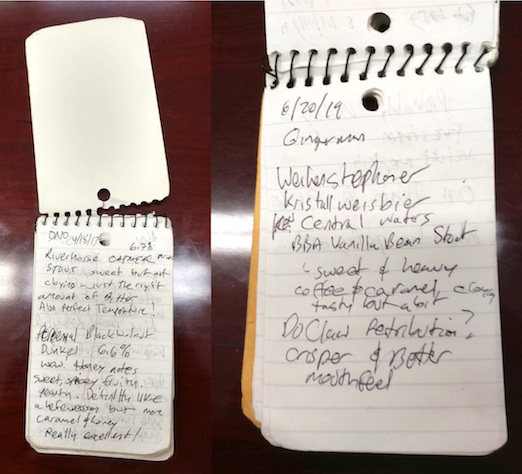 DNO 4/15/
6.7%
Riverhorse oatmeal
Stout sweet but not
cloying - just the right
amount of Bitter
Also perfect Temperature!
Perennial Black walnut
Dunkel 6.6%
wow. Honey notes
sweet, spicey fruity.
yeasty. Definitely like
a hefeweizen but more
caramel & honey
Really excellent!
6/20/19
Gingerman
Weihenstephaner
Kristallweisbier
Central waters
BBA Vanilla Bean Stout
sweet & heavy
coffee & caramel cloying
tasty but a bit
DuClaw Retribution?
crisper & Better
mouthfeel